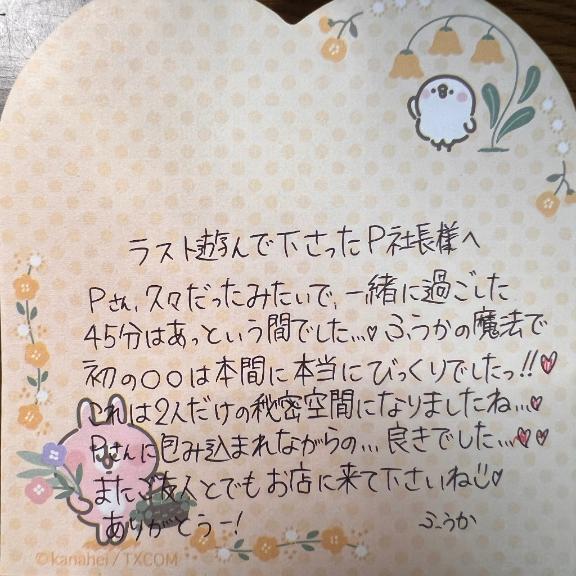 ラスト遊んで下さったP社長様へ
Pさん、久々だったみたいで、一緒に過ごした
45分はあっという間でした...♡ ふうかの魔法で
初の〇〇は本間に本当にびっくりでしたっ!!♥
これは2人だけの秘密空間になりましたね...♡
Pさんに包み込まれながらの...良きでした...♥♡
またご友人とでもお店に来て下さいね♡
ありがとうー!
ふうか
©kanahei / TXCOM